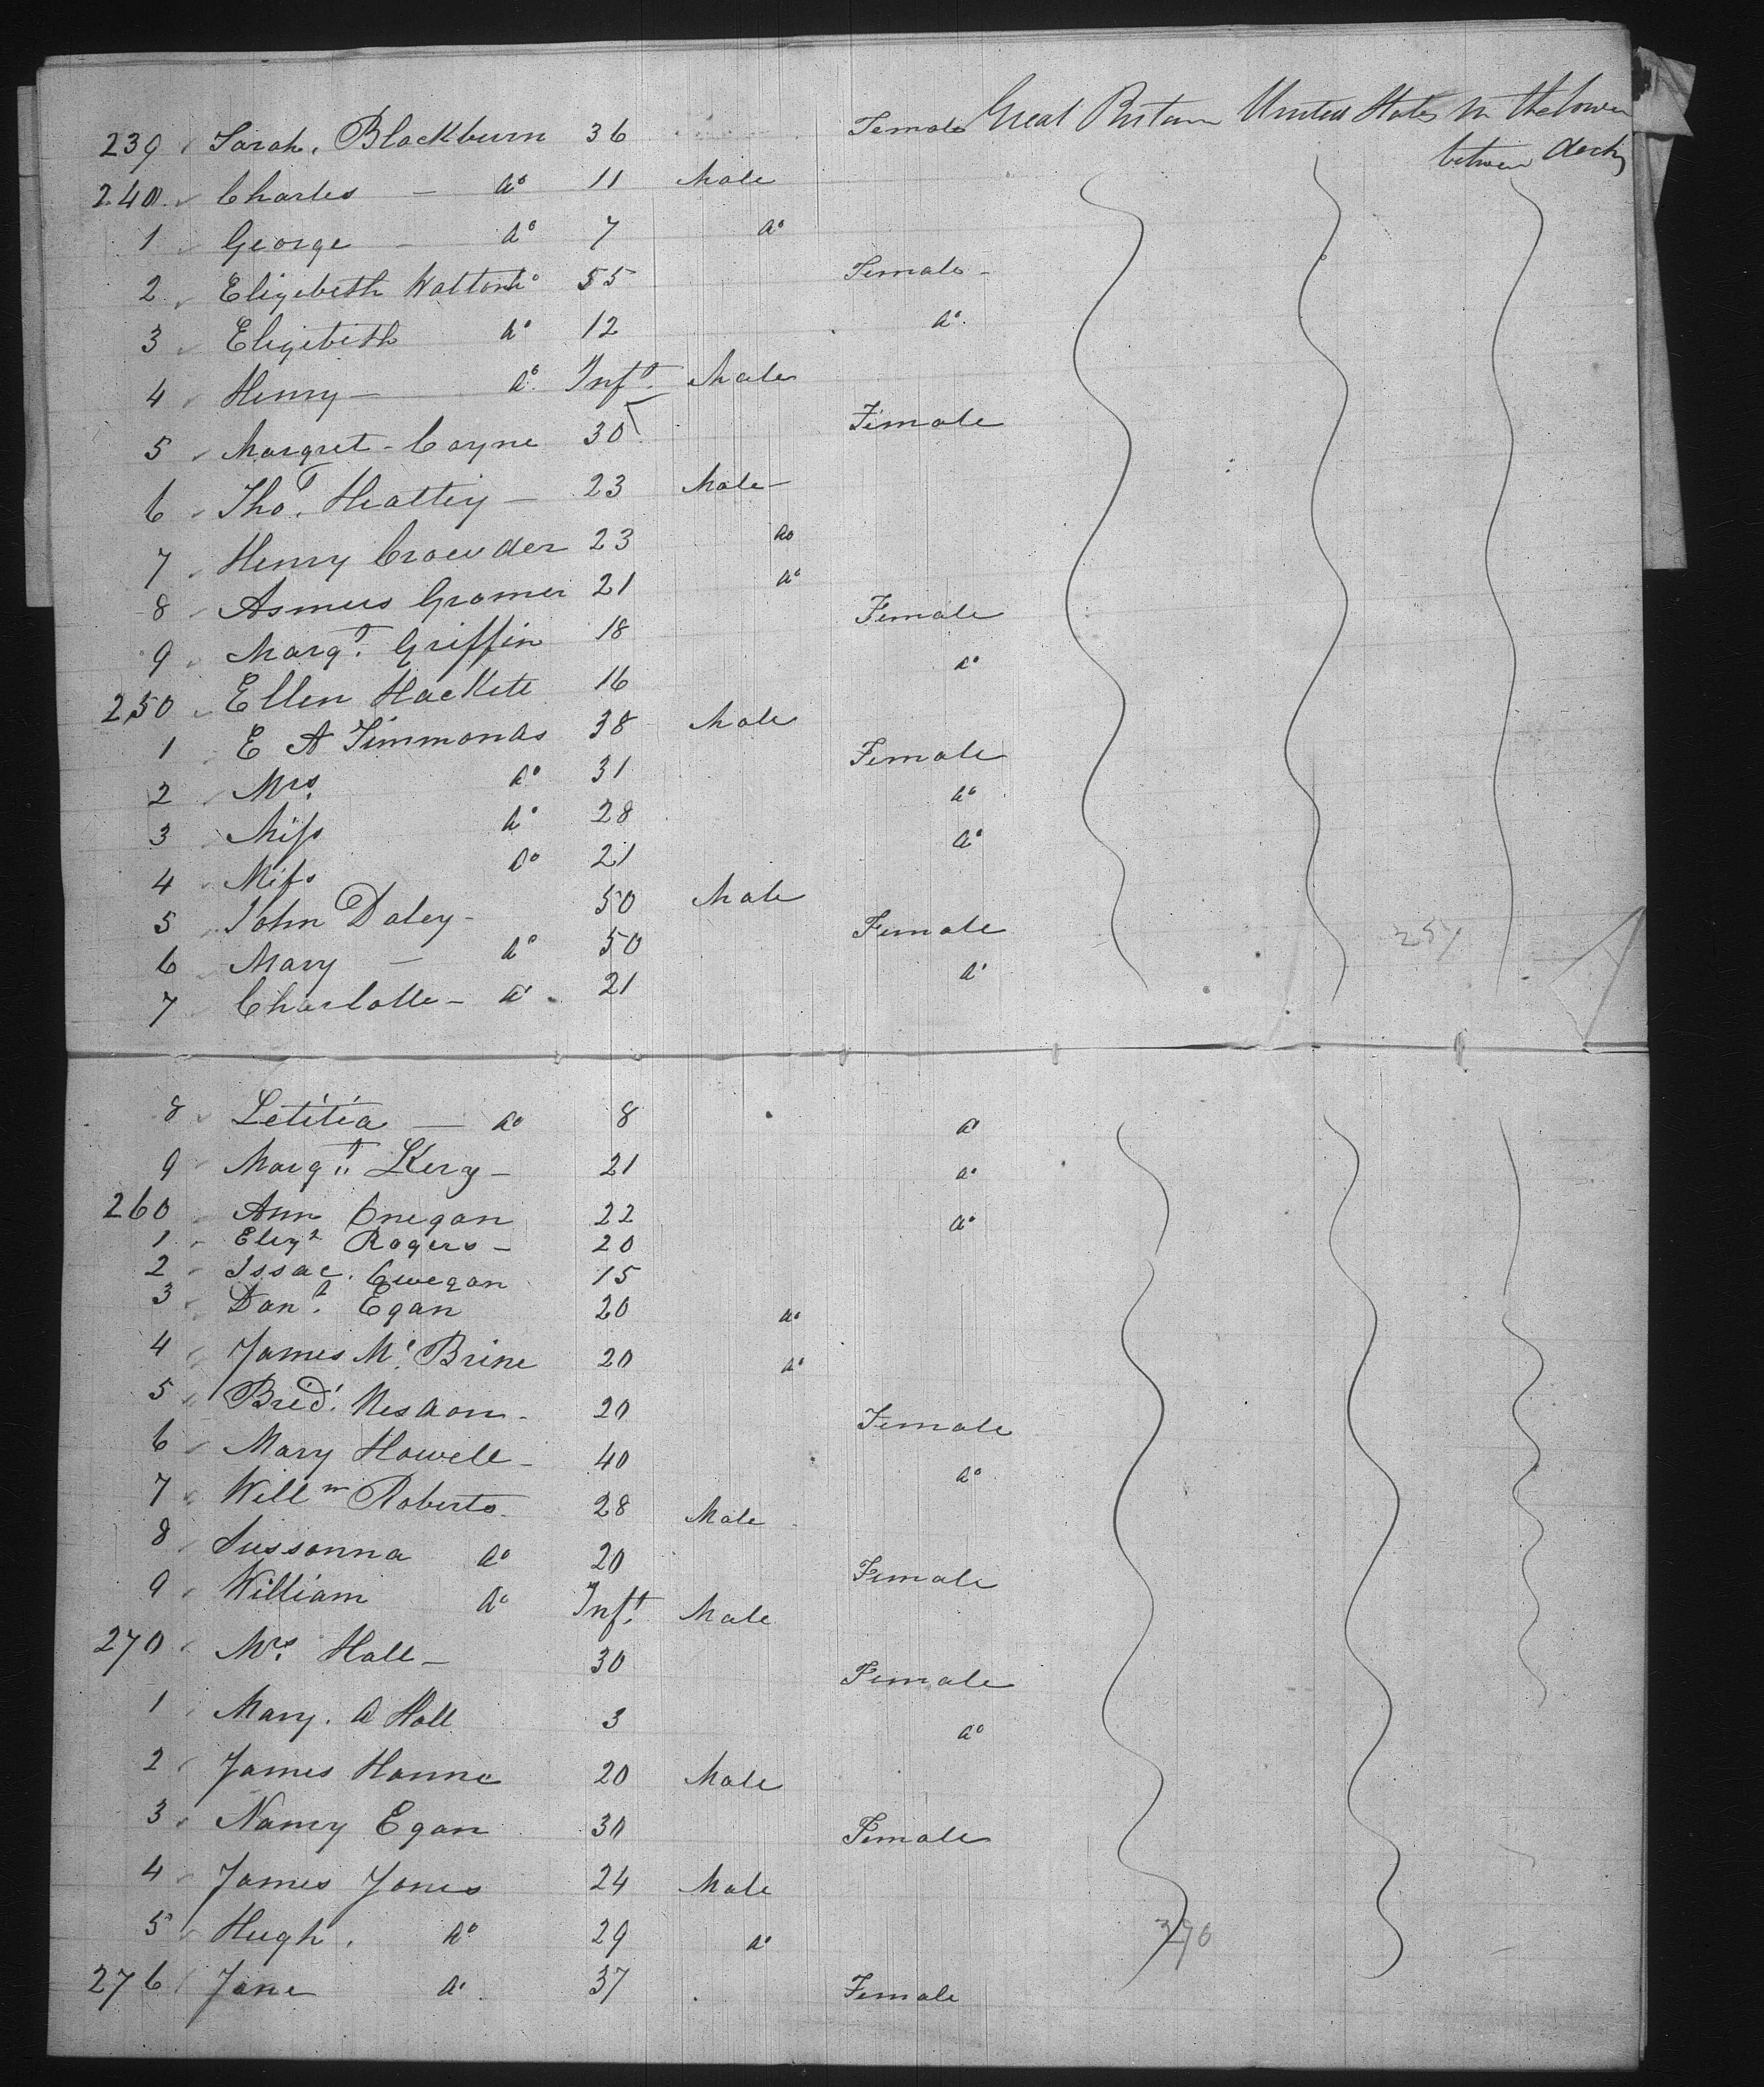 239 Sarah. Blackburn 36 Female Great Britain United States In the lower
between decks
240 Charles - do 11 Male
1 George - do 7 do
2 Elizebeth Watton do 55 Female -
3 Elizebith do 12 do
4 Henry - do Inft. Male
5 Margret - Coyne 30 Female
6 Tho. Heattey - 23 Male -
7 Henry Crowder 23 do
8 Asmus Gramer 21 do
9 Margt. Griffin 18 Female
250 Ellen Hackett 16 do
1 E A Timmonds 38 Male
2 Mrs. do 31 Female
3 Miss do 28 do
4 Miss do 21 do
5 John Daley - 50 Male
6 Mary - do 50 Female 257
7 Charlotte - do 21 do
8 Letitia - do 8 do
9 Margt. Kery - 21 do
260 Ann 22 do
1 Elizh Rogers - 20
2 Issac. 15
3 Danl. Egan 20 do
4 James Mc. Brine 20 do
5 Brid. 20 Female
6 Mary Howell - 40 do
7 Willm Roberts 28 Male
8 Sussanna do 20 Female
9 William do Inft. Male
270 Mrs. Hall - 30 Female
1 Mary. A Hall 3 do
2 James Hanna 20 Male
3 Nancy Egan 30 Female
4 James Jones 24 Male
5 Hugh. do 29 do
276 Jane do 37 Female